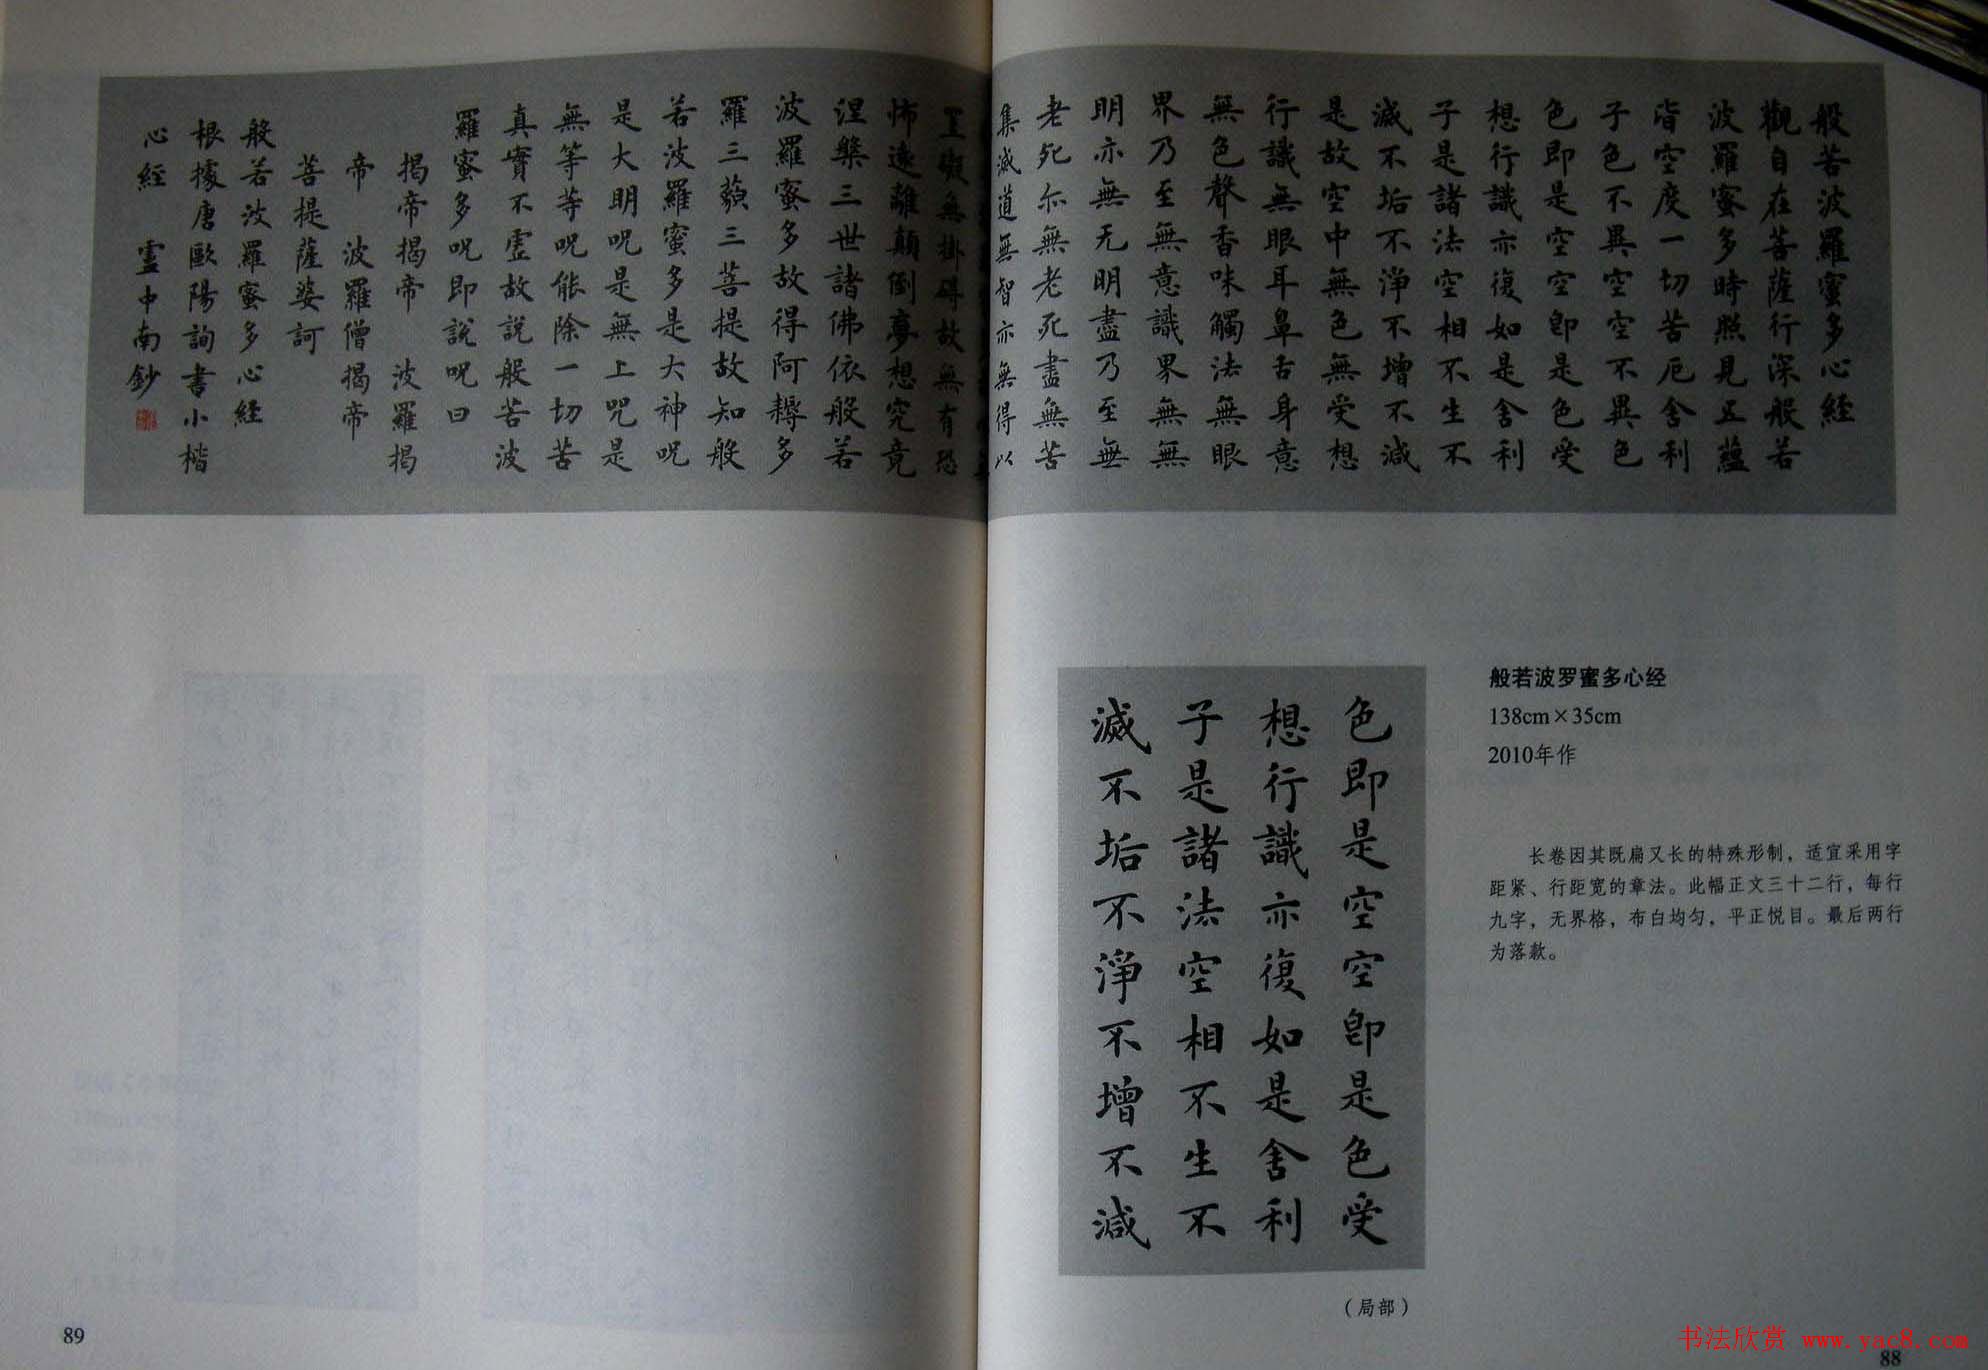 般若波羅蜜多心經
觀自在菩薩行深般若
波羅蜜多時照見五蘊
皆空度一切苦厄舍利
子色不異空空不異色
色即是空空即是色受
想行識亦復如是舍利
子是諸法空相不生不
滅不垢不淨不增不減
是故空中無色無受想
行識無眼耳鼻舌身意
無色聲香味觸法無眼
界乃至無意識界無無
明亦無无明盡乃至無
老死亦無老死盡無苦
集滅道無智亦無得以
罣礙無掛碍故無有恐
怖遠離顛倒夢想究竟
涅槃三世諸佛依般若
波羅蜜多故得阿耨多
羅三藐三菩提故知般
若波羅蜜多是大神呪
是大明呪是無上咒是
無等等呪能除一切苦
真實不虛故說般若波
羅蜜多呪即說呪曰
揭帝揭帝 波羅揭
帝 波羅僧揭帝
菩提薩婆訶
般若波羅蜜多心經
根據唐歐陽詢書小楷
心經 中南鈔
色即是空空即是色受
想行識亦復如是舍利
子是諸法空相不生不
滅不垢不淨不增不減
(局部)
般若波罗蜜多心经
138cm×35cm
2010年作
长卷因其既扁又长的特殊形制，适宜采用字
距紧、行距宽的章法。此幅正文三十二行，每行
九字，无界格，布白均匀，平正悦目。最后两行
为落款。
89
88
书法欣赏 www.yac8.com